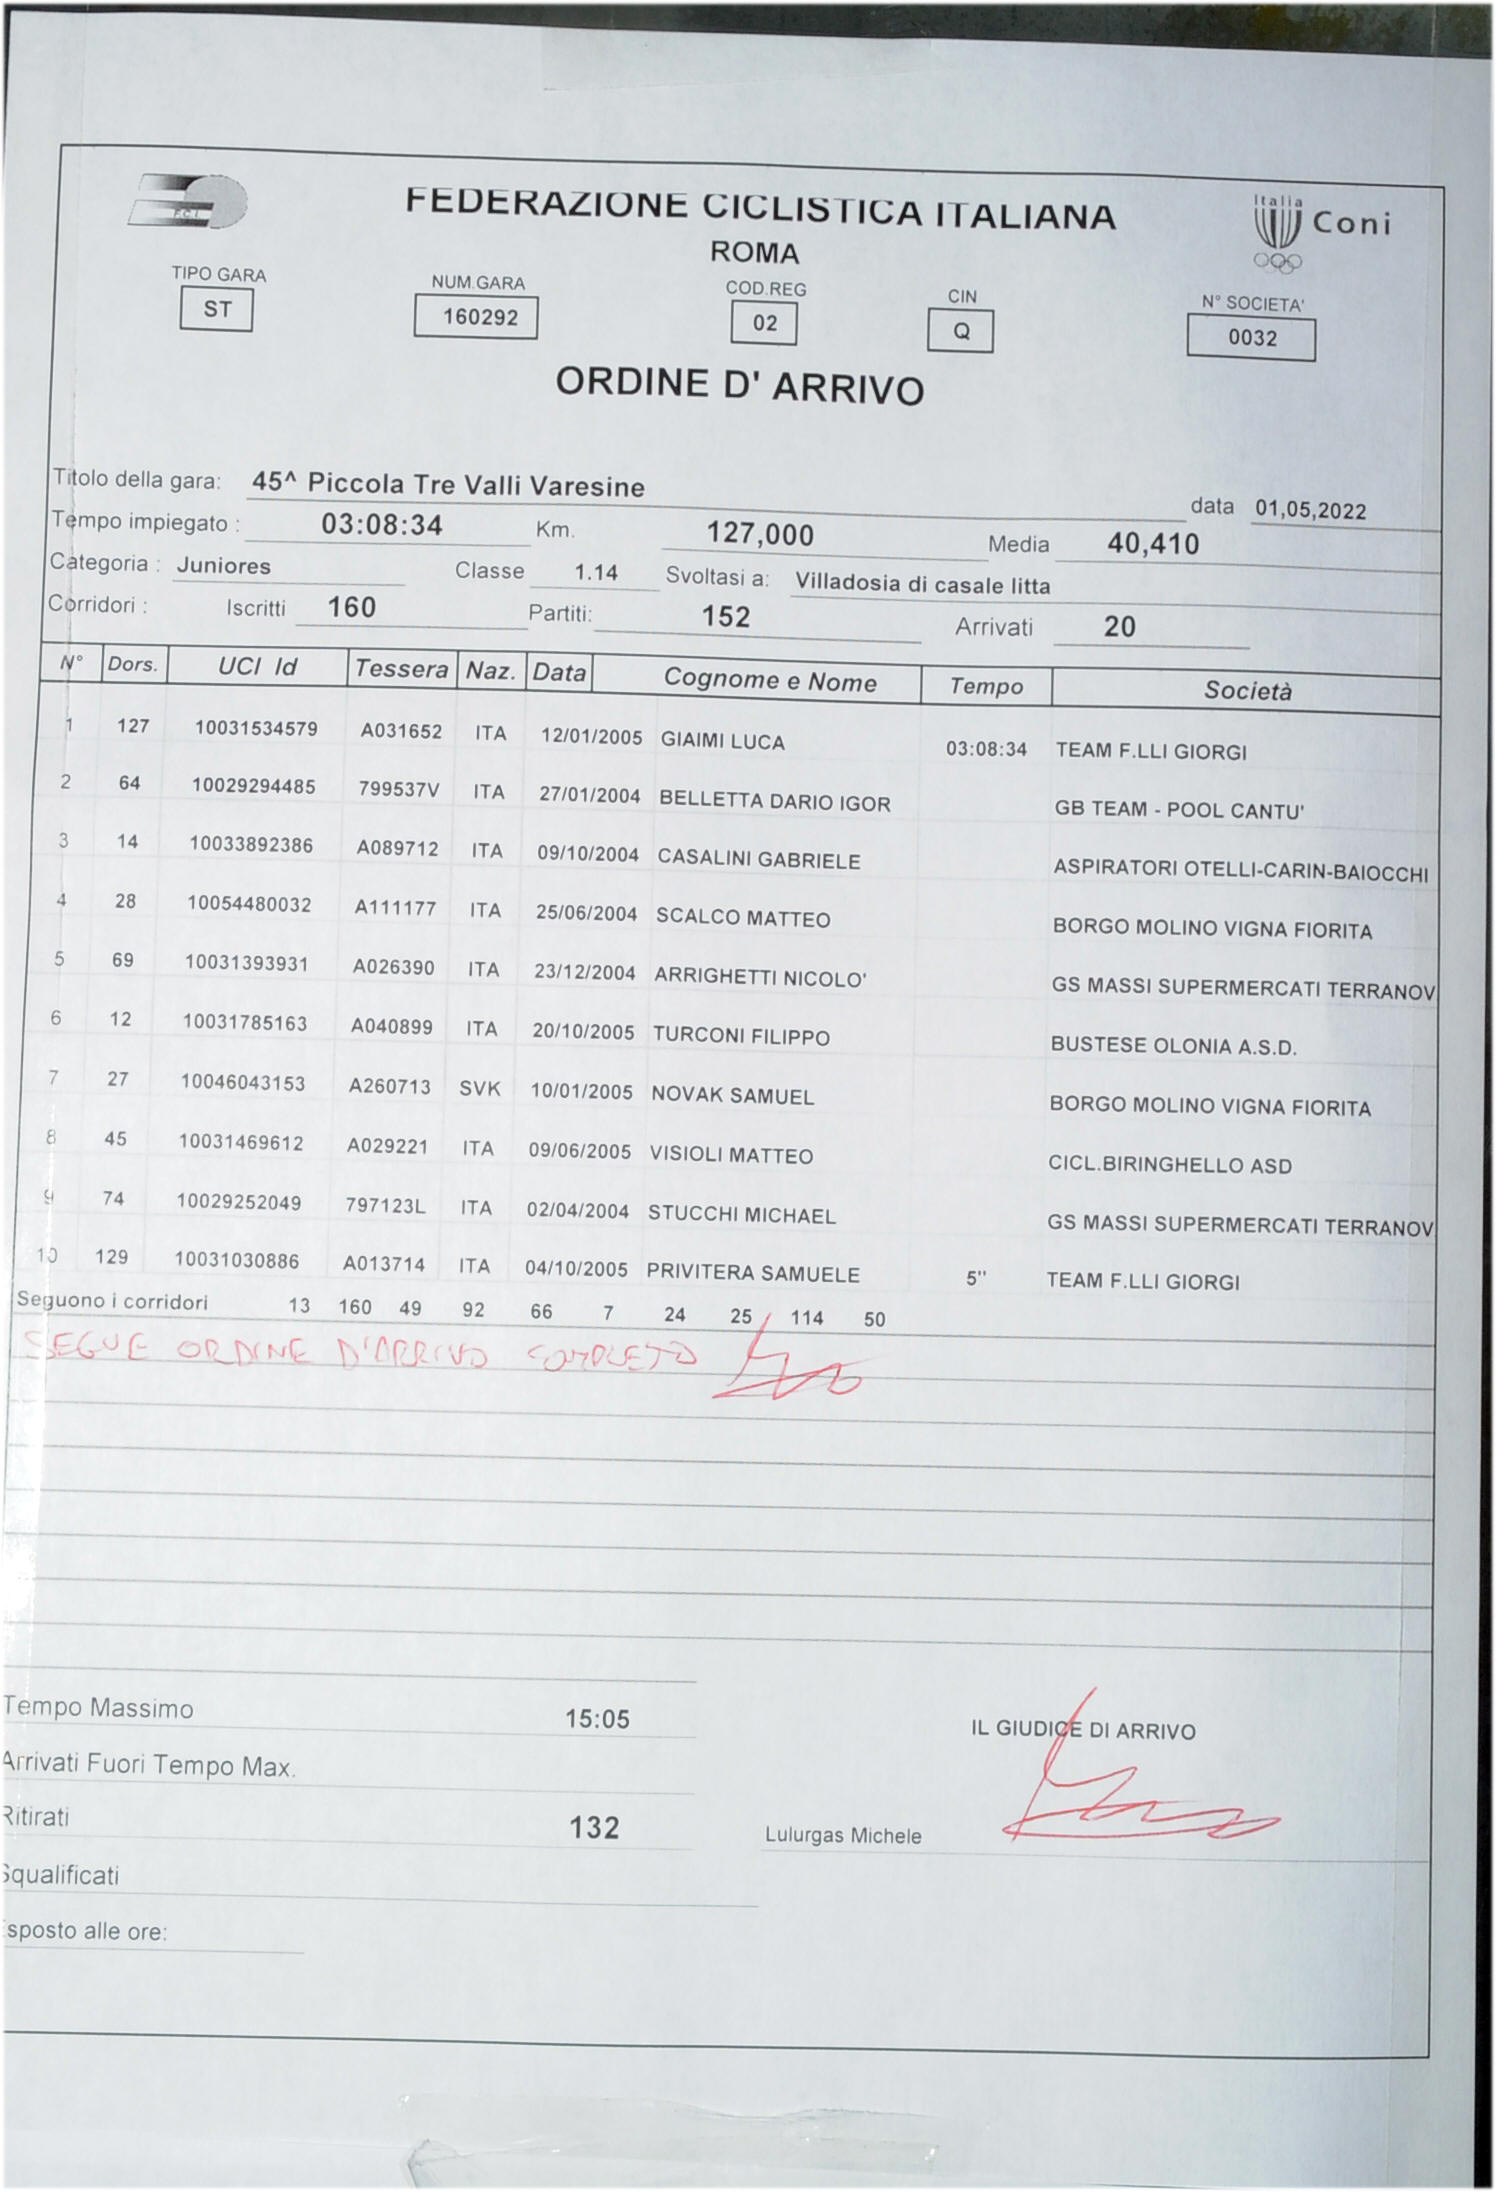 F.C.I.
FEDERAZIONE CICLISTICA ITALIANA
Italia
Coni
ROMA
TIPO GARA NUM.GARA COD.REG CIN N° SOCIETA'
ST 160292 02 Q 0032
ORDINE D' ARRIVO
Titolo della gara: 45^ Piccola Tre Valli Varesine data 01,05,2022
Tempo impiegato : 03:08:34 Km. 127,000 Media 40,410
Categoria : Juniores Classe 1.14 Svoltasi a: Villadosia di casale litta
Corridori : Iscritti 160 Partiti: 152 Arrivati 20
N° Dors. UCI Id Tessera Naz. Data Cognome e Nome Tempo Società
1 127 10031534579 A031652 ITA 12/01/2005 GIAIMI LUCA 03:08:34 TEAM F.LLI GIORGI
2 64 10029294485 799537V ITA 27/01/2004 BELLETTA DARIO IGOR GB TEAM - POOL CANTU'
3 14 10033892386 A089712 ITA 09/10/2004 CASALINI GABRIELE ASPIRATORI OTELLI-CARIN-BAIOCCHI
4 28 10054480032 A111177 ITA 25/06/2004 SCALCO MATTEO BORGO MOLINO VIGNA FIORITA
5 69 10031393931 A026390 ITA 23/12/2004 ARRIGHETTI NICOLO' GS MASSI SUPERMERCATI TERRANOV
6 12 10031785163 A040899 ITA 20/10/2005 TURCONI FILIPPO BUSTESE OLONIA A.S.D.
7 27 10046043153 A260713 SVK 10/01/2005 NOVAK SAMUEL BORGO MOLINO VIGNA FIORITA
8 45 10031469612 A029221 ITA 09/06/2005 VISIOLI MATTEO CICL.BIRINGHELLO ASD
9 74 10029252049 797123L ITA 02/04/2004 STUCCHI MICHAEL GS MASSI SUPERMERCATI TERRANOV
10 129 10031030886 A013714 ITA 04/10/2005 PRIVITERA SAMUELE 5" TEAM F.LLI GIORGI
Seguono i corridori 13 160 49 92 66 7 24 25 114 50
SEGUE ORDINE D'ARRIVO COMPLETO
Tempo Massimo 15:05
IL GIUDICE DI ARRIVO
Arrivati Fuori Tempo Max.
Ritirati 132
Lulurgas Michele
Squalificati
sposto alle ore: